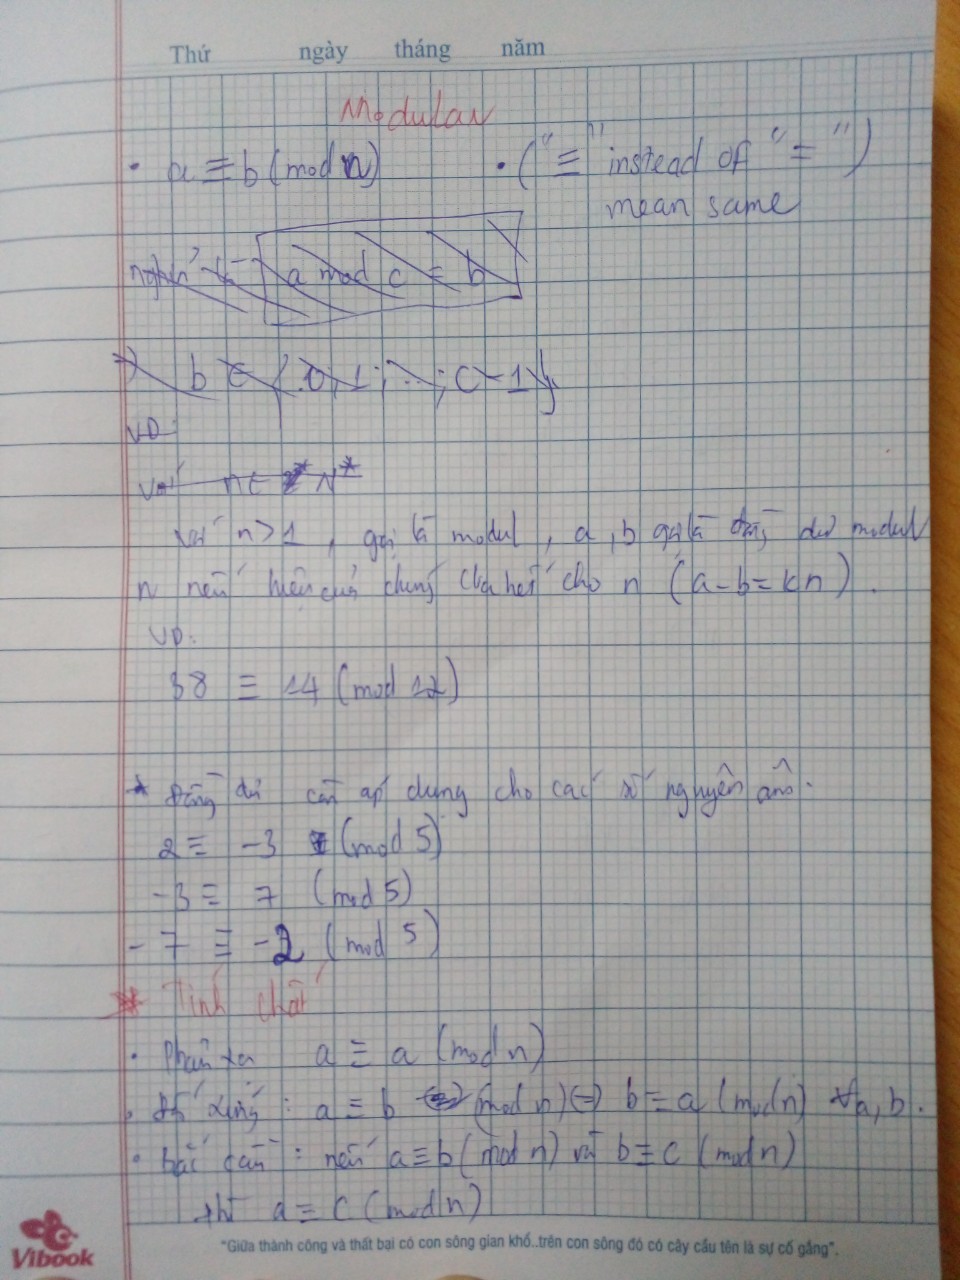 Thứ ngày tháng năm
Modular
• a ≡ b (mod n) • ("≡" instead of "=")
mean same
nghĩa là a mod c = b
b ∈ {0, 1; ...; c-1}
VD:
với n ∈ N*
với n > 1, gọi là modul, a, b gọi là đồng dư modul
n nếu hiệu của chúng chia hết cho n (a-b=kn).
VD:
38 ≡ 14 (mod 12)
* Đồng dư còn áp dụng cho các số nguyên âm.
2 ≡ -3 (mod 5)
-3 ≡ 7 (mod 5)
-7 ≡ -2 (mod 5)
* Tính chất
• Phản xạ a ≡ a (mod n)
• đối xứng: a ≡ b (mod n) (=) b ≡ a (mod n) ∀a, b.
• bắc cầu: nếu a ≡ b (mod n) và b ≡ c (mod n)
thì a ≡ c (mod n)
Vibook
"Giữa thành công và thất bại có con sông gian khổ..trên con sông đó có cây cầu tên là sự cố gắng".